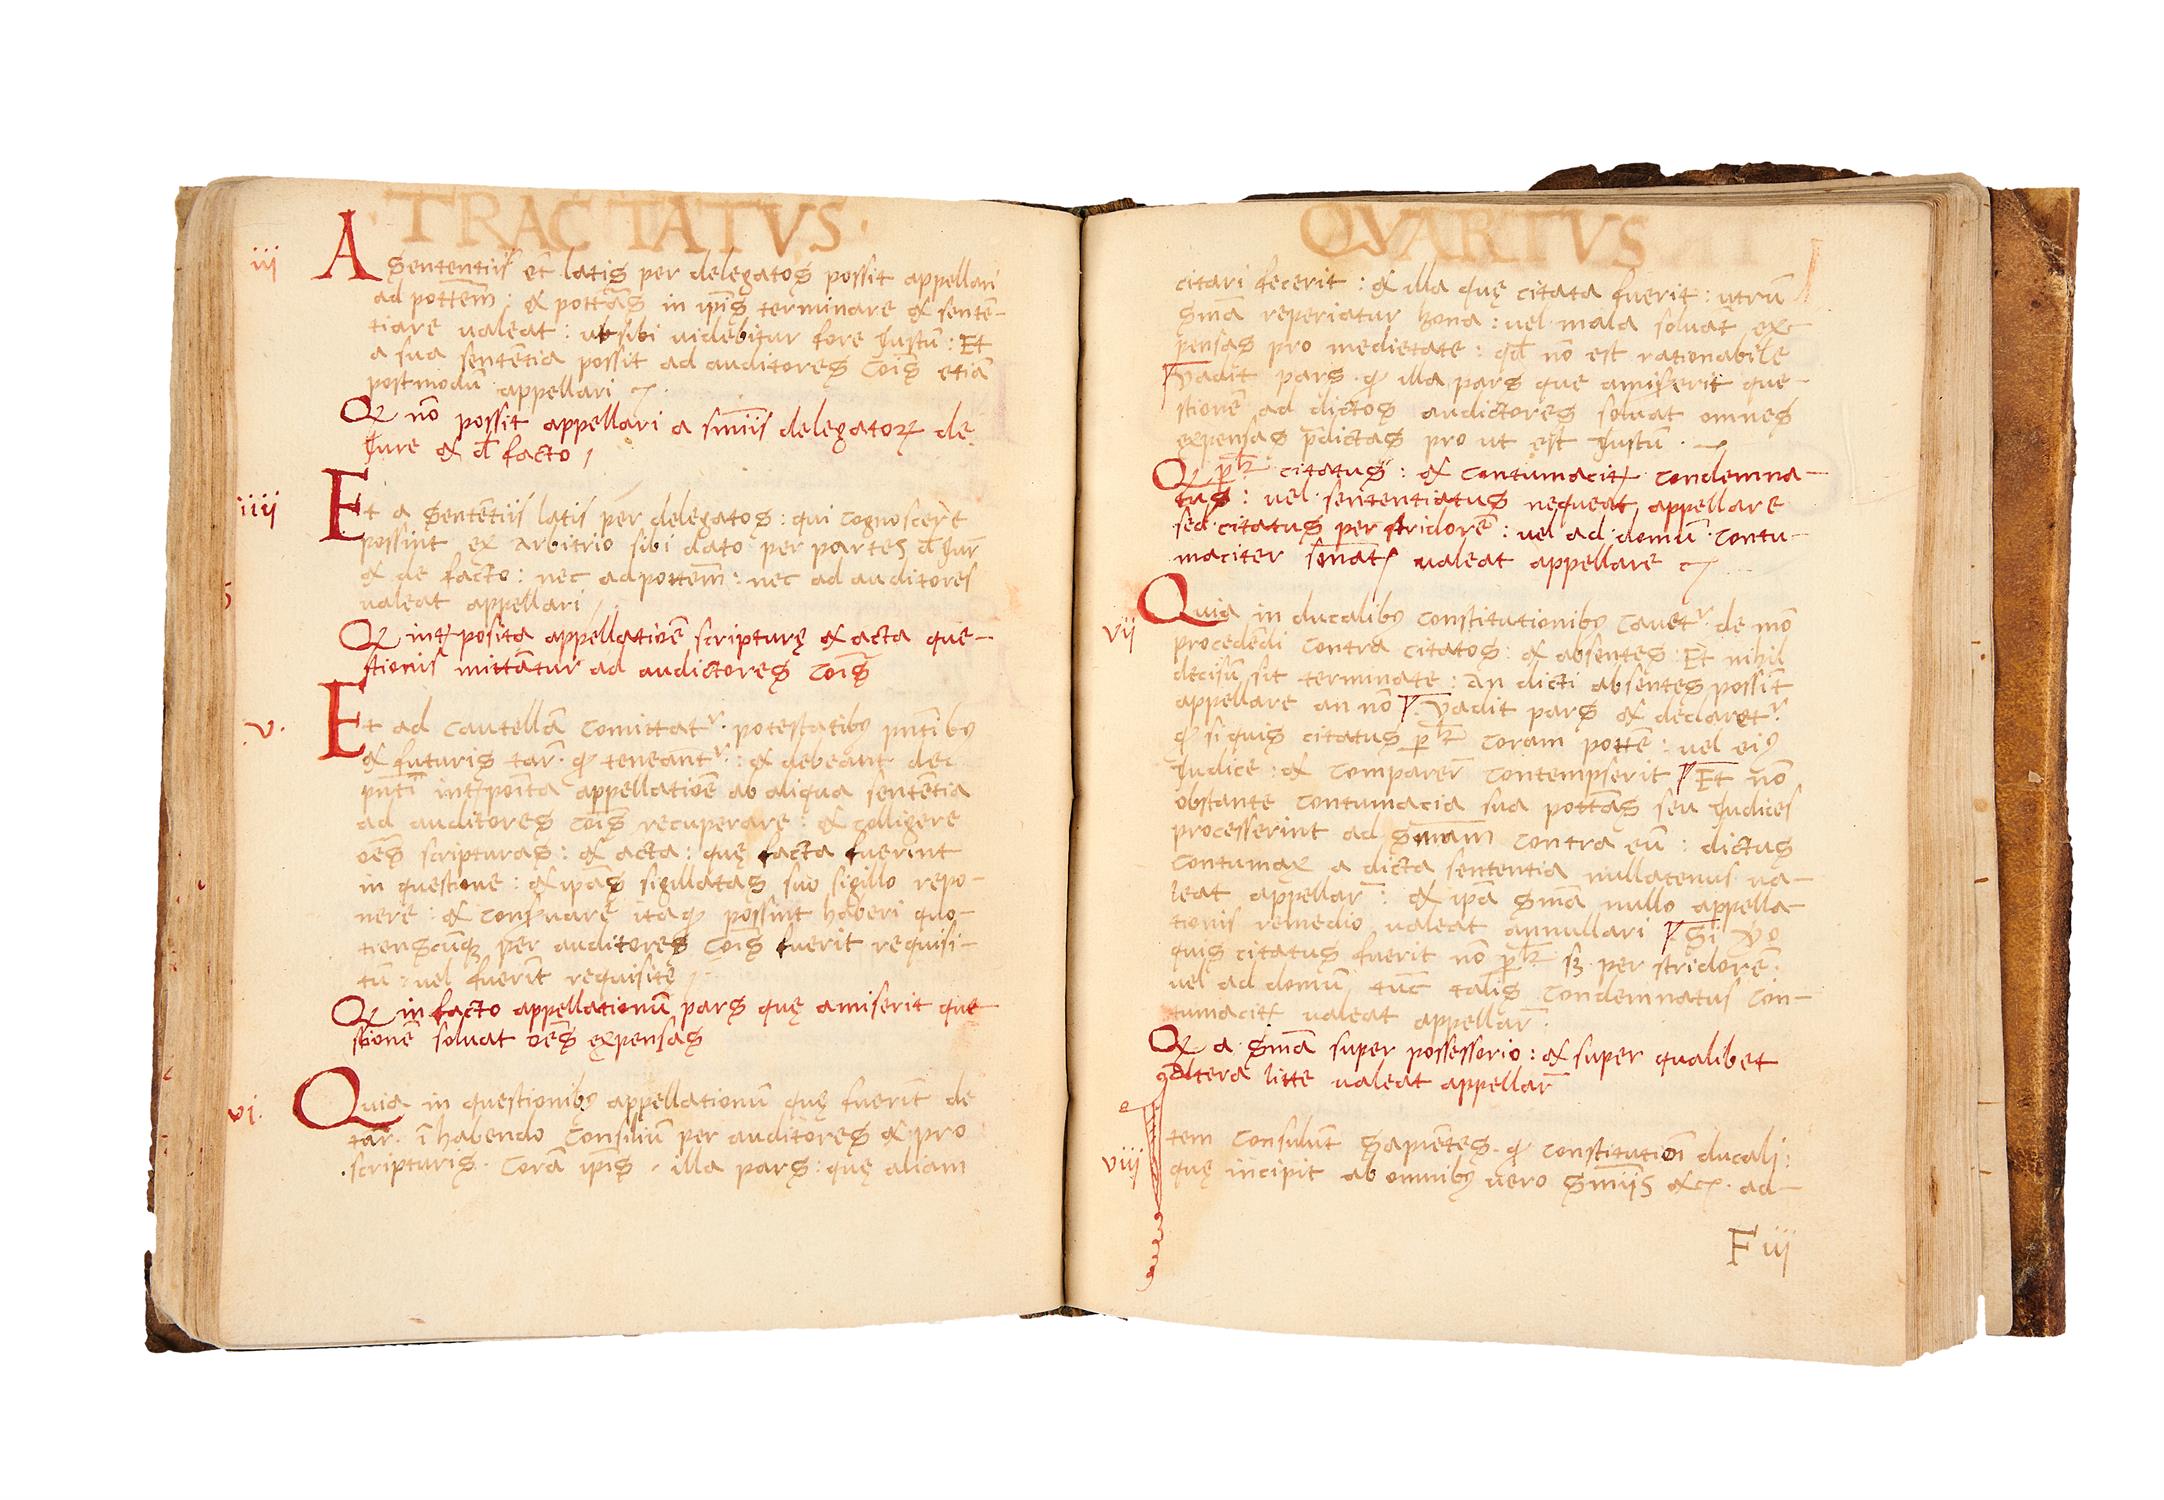 · TRACTATVS ·
iii
A sententiis et̄ latis per delegatos possit appellari
ad pott̄em : & pott̄as in ip̄is terminare & sentē-
tiare ualeat : ubi sibi uidebitur fore Justū : Et
a sua sentētia possit ad auditores cōis etiā
postmodū appellari
Qꝫ nō possit appellari a sn̄iis delegatoꝝ de
Jure & d̄ facto /
iiii
Et a sentētiis latis per delegatos : qui cognoscere
possint ex arbitrio sibi dato per partes d̄ Jur̄
& de facto : nec ad pottem̄ : nec ad auditores
ualeat appellari
Qꝫ int̄posita appellatiōe scripturę & acta que-
stionis mittātur ad audictores cōis
.v.
Et ad cautellā comittat᷑ potestatibꝰ pn̄tibꝰ
& futuris tar̄. qꝫ teneant᷑ : & debeant de
int̄poīta appellatiōe ab aliqua sentētia
ad auditores cōis recuperare : & colligere
oēs scripturas : & acta : quę facta fuerint
in questione : & ip̄as sigillatas suo sigillo repo-
nere : & cōseruare itaqꝫ possint haberi quo-
tienscūqꝫ per auditores cōis fuerit requisi-
tū : uel fuerīt requisite
Qꝫ in facto appellationū pars quę amiserit que
stionē soluat oēs expensas
vi.
Quia in questionibꝰ appellationū quę fuerīt de
tar̄. ī habendo consiliū per auditores & pro
scripturis . corā ip̄is . illa pars : quę aliam
QVARTVS
citari fecerit : & illa quę citata fuerit : utrū
sn̄ia reperiatur bona : uel mala soluat ex-
pensas pro medietate : qd̄ nō est rationabile
Vadit pars qꝫ illa pars que amiserit que-
stionē ad dictos audictores soluat omnes
expensas p̄dictas pro ut est Justū .
Qꝫ citatus : & contumacit̄ condemna-
tus : uel sententiatus nequeat appellare
sed citatus per stridorē : uel ad domū contu-
maciter sn̄iat᷑ ualeat appellare
vii
Quia in ducalibꝰ constitutionibꝰ cauet᷑ de mō
procedēdi contra citatos : & absentes : Et nihil
decisū sit terminate : an dicti absentes possīt
appellare an nō Vadit pars & declaret᷑
qꝫ si quis citatus coram pottē : uel eiꝰ
Judice : & comparer̄ contempserit Et nō
obstante contumacia sua pott̄as seu Judices
processerint ad sn̄iam contra eū : dictus
contumax a dicta sententia nullatenus ua-
leat appellar̄ : & ip̄a sn̄ia nullo appella-
tionis remedio ualeat annullari Si ỽo
quis citatus fuerit nō sꝫ per stridorē :
uel ad domū tūc talis condemnatus con-
tumacit̄ ualeat appellar̄ .
Qꝫ a sn̄ia super possessorio : & super qualibet
altera litte ualeat appellar̄
viii
Item consulūt sapiētes . qꝫ constitutiōi ducali :
quę incipit ab omnibꝰ uero sn̄iis &c. ad-
F iij